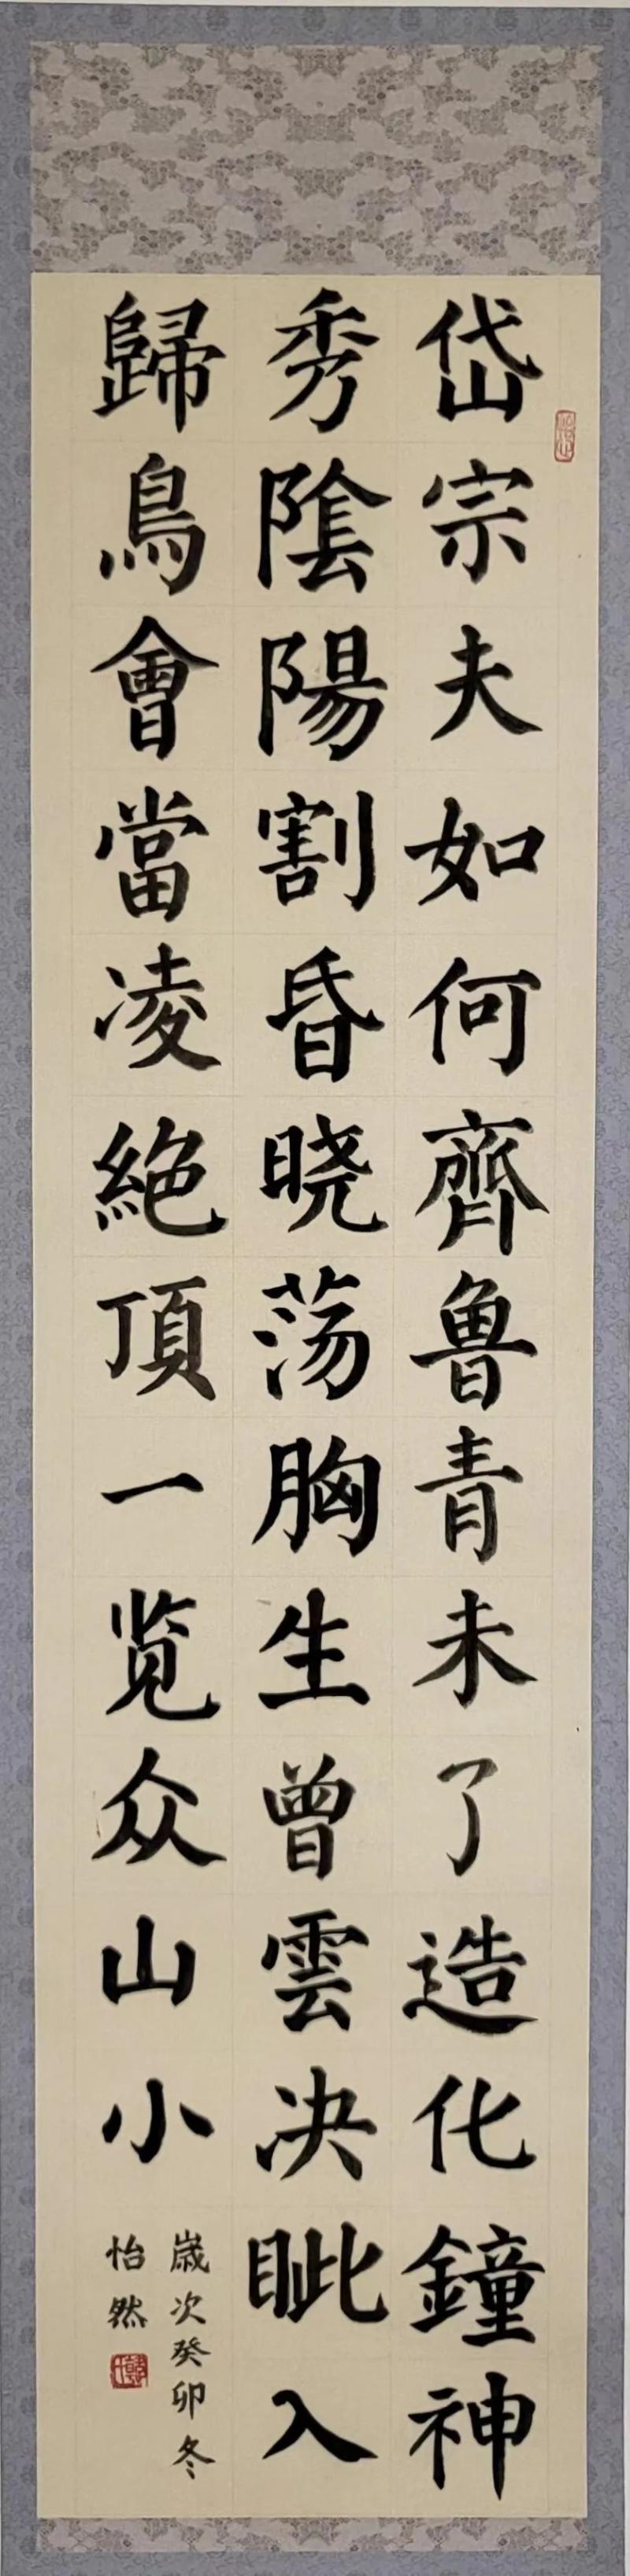 岱宗夫如何齊魯青未了造化鐘神
秀陰陽割昏晓荡胸生曾雲决眦入
歸鳥會當凌絶頂一览众山小
歲次癸卯冬
怡然